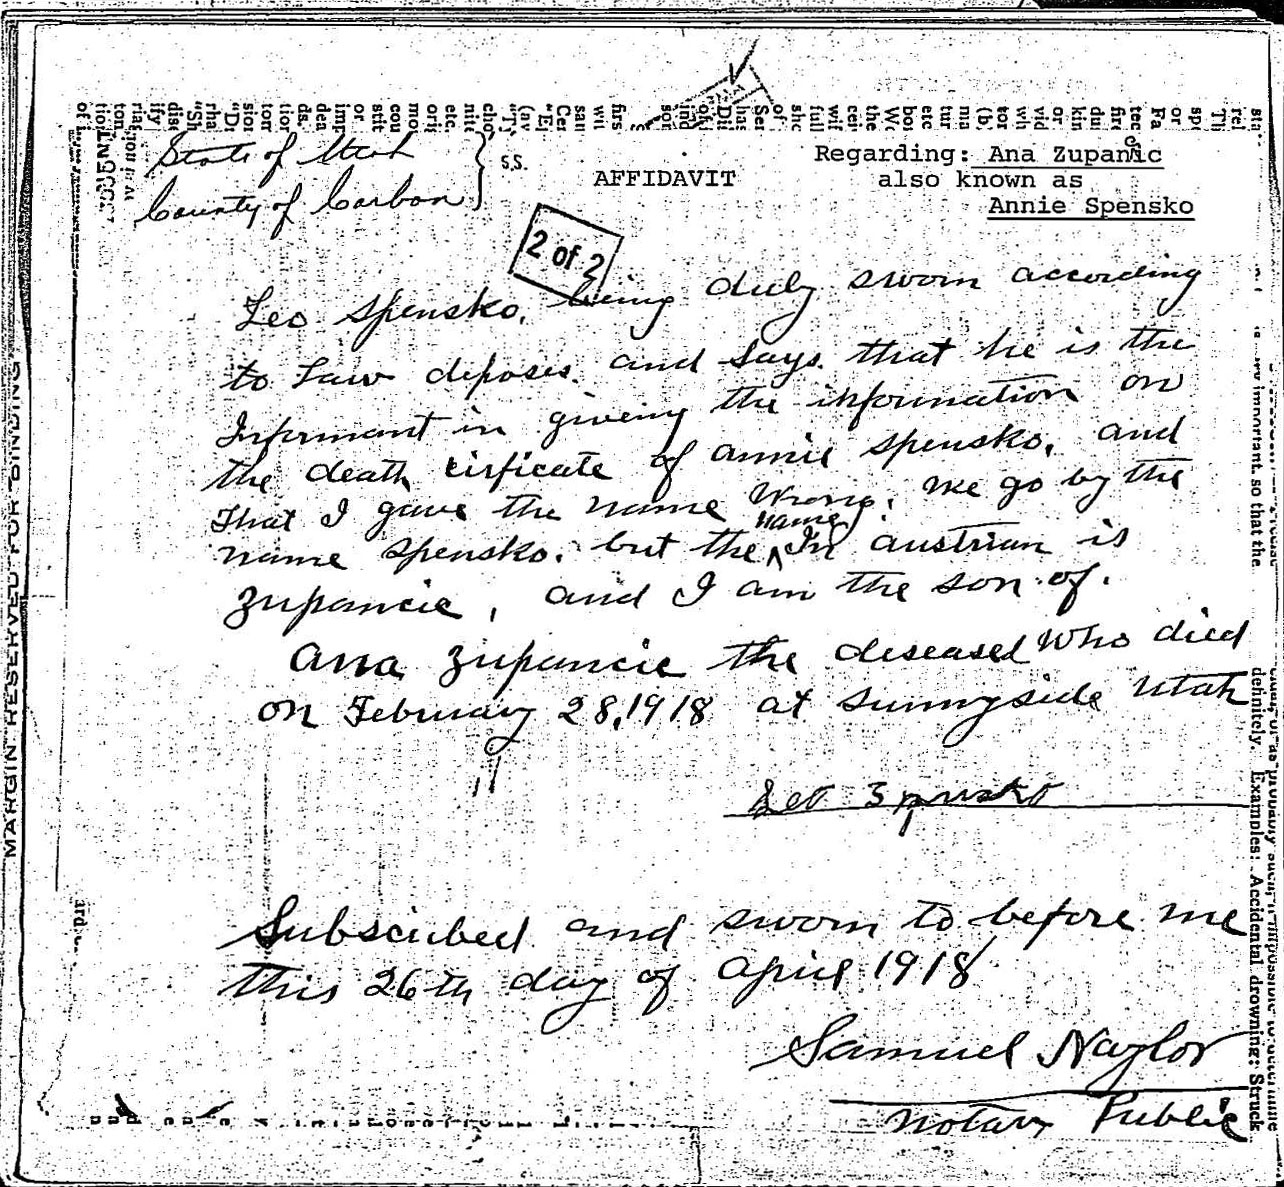 State of Utah
County of Carbon
} S.S.
AFFIDAVIT
Regarding: Ana Zupanic
also known as
Annie Spensko
2 of 2
Leo Spensko, being duly sworn according
to Law deposes. and says. that he is the
Informant in giveing the information on
the death cirficate of annie Spensko, and
That I gave the name Wrong. we go by the
name Spensko. but the name In austrian is
Zupancic, and I am the son of.
Ana Zupancic the deseased who died
on February 28, 1918 at Sunnyside Utah
Leo Spensko
Subscribed and sworn to before me
this 26th day of April 1918
Samuel Naylor
Notary Public
MARGIN RESERVED FOR BINDING
important, so that the
definitely. Examples: Accidental drowning: Struck